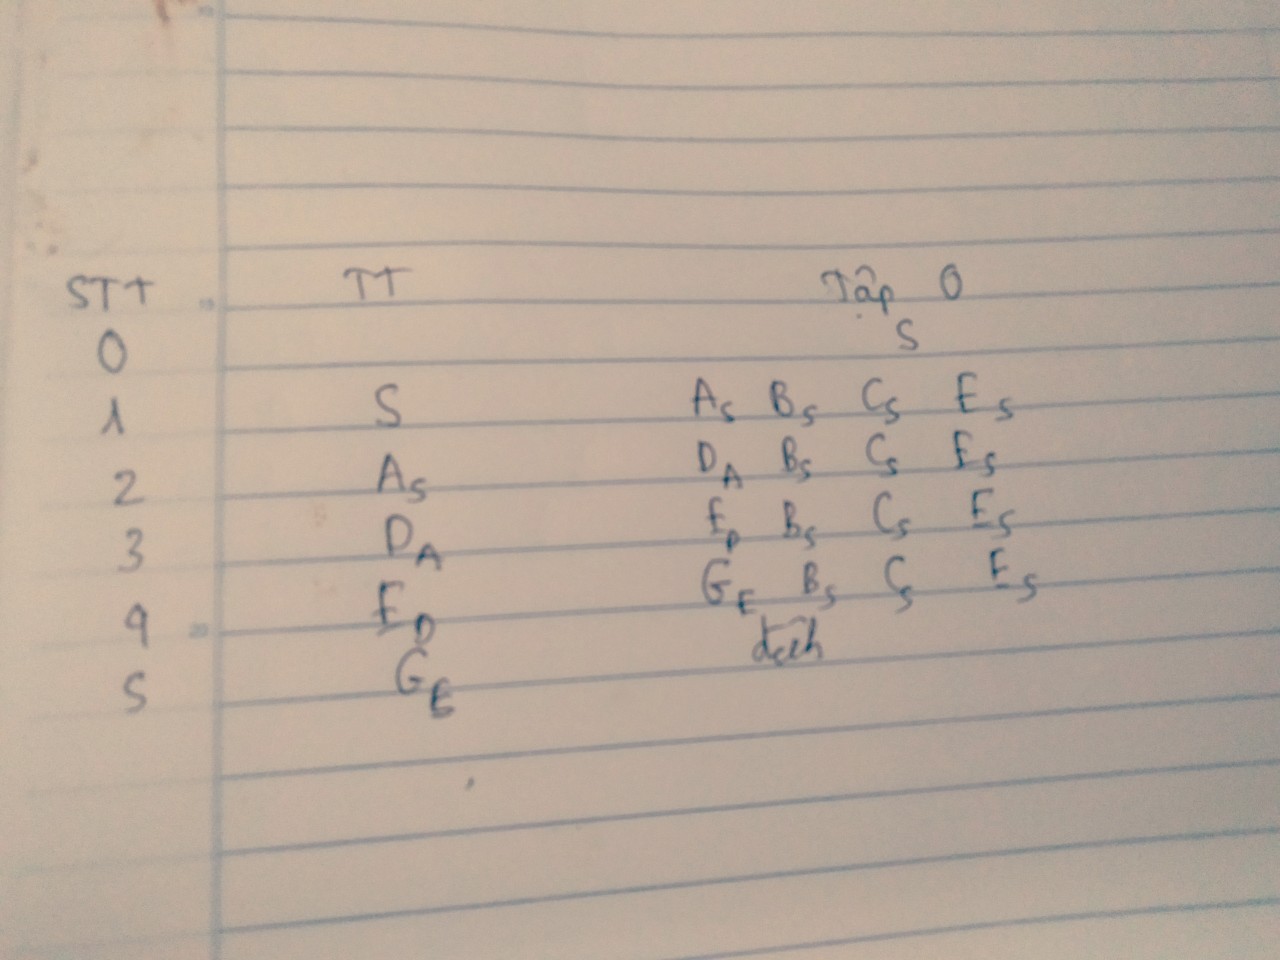 STT TT Tập O
0 S
1 S As Bs Cs Es
2 As DA Bs Cs Es
3 DA ED Bs Cs Es
4 ED GE Bs Cs Es
5 GE đích